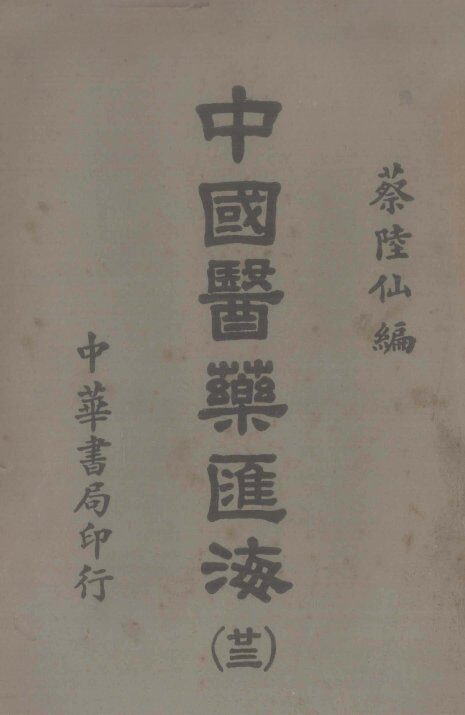 蔡陸仙編
中國醫藥匯海
(廿三)
中華書局印行